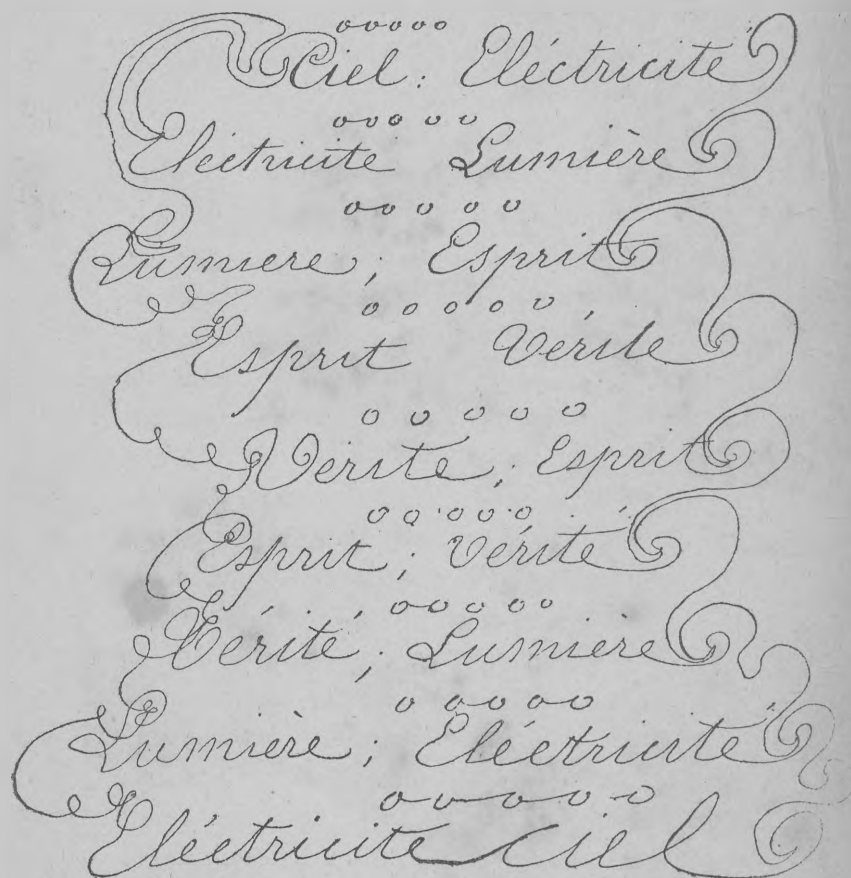 ooooo
Ciel : Eléctricité
ooooo
Eléctricité Lumière
ooooo
Lumiere ; Esprit
ooooo
Esprit Vérité
ooooo
Vérité ; Esprit
ooooo
Esprit ; Vérité
ooooo
Vérité ; Lumière
ooooo
Lumière ; Eléctricité
ooooo
Eléctricité ciel